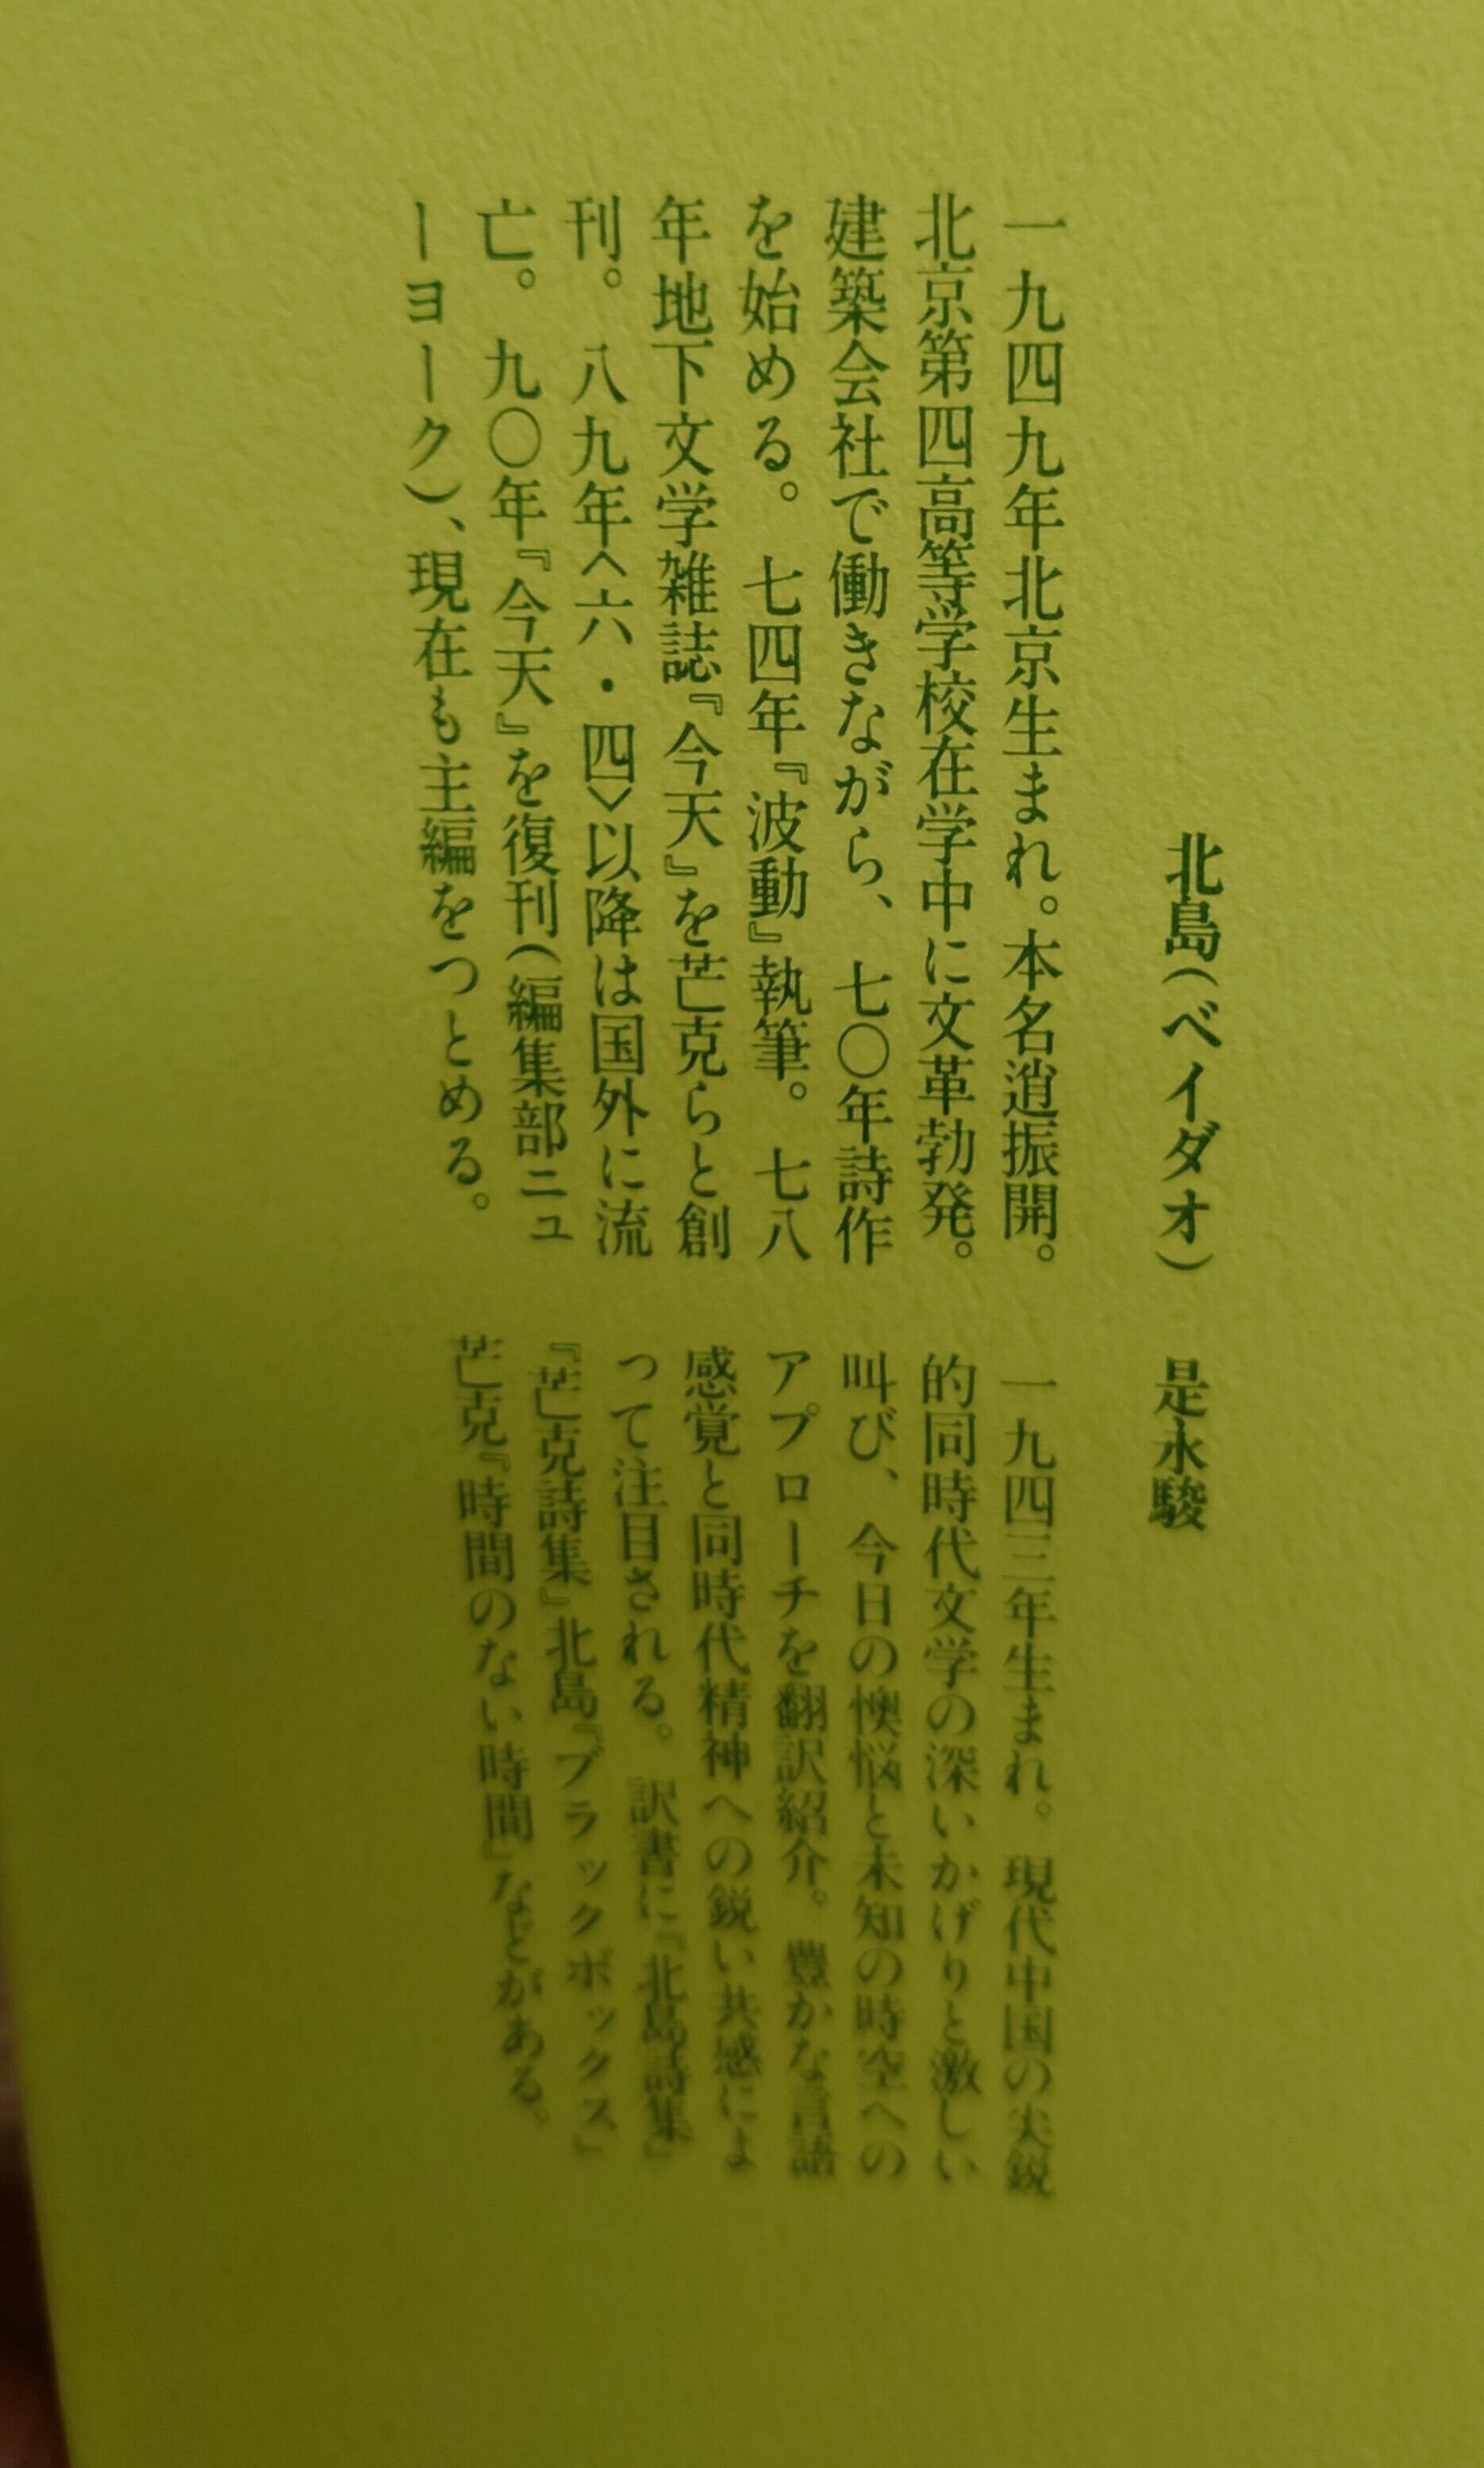 北島(ベイダオ)
一九四九年北京生まれ。本名逍振開。
北京第四高等学校在学中に文革勃発。
建築会社で働きながら、七〇年詩作
を始める。七四年『波動』執筆。七八
年地下文学雑誌『今天』を芒克らと創
刊。八九年〈六・四〉以降は国外に流
亡。九〇年『今天』を復刊(編集部ニュ
ーヨーク)、現在も主編をつとめる。
是永駿
一九四三年生まれ。現代中国の尖鋭
的同時代文学の深いかげりと激しい
叫び、今日の懊悩と未知の時空への
アプローチを翻訳紹介。豊かな言語
感覚と同時代精神への鋭い共感によ
って注目される。訳書に『北島詩集』
『芒克詩集』北島『ブラックボックス』
芒克『時間のない時間』などがある。